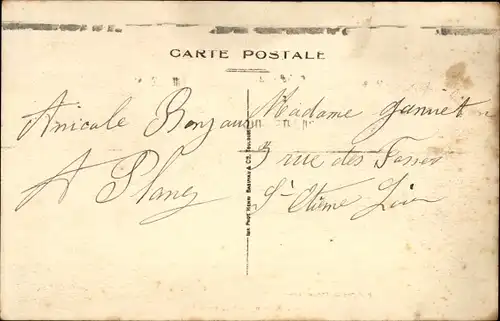 CARTE POSTALE
Amicale Bonjour
A Planez
Madame Ganivet
3 rue des Fosses
St Etienne Loire